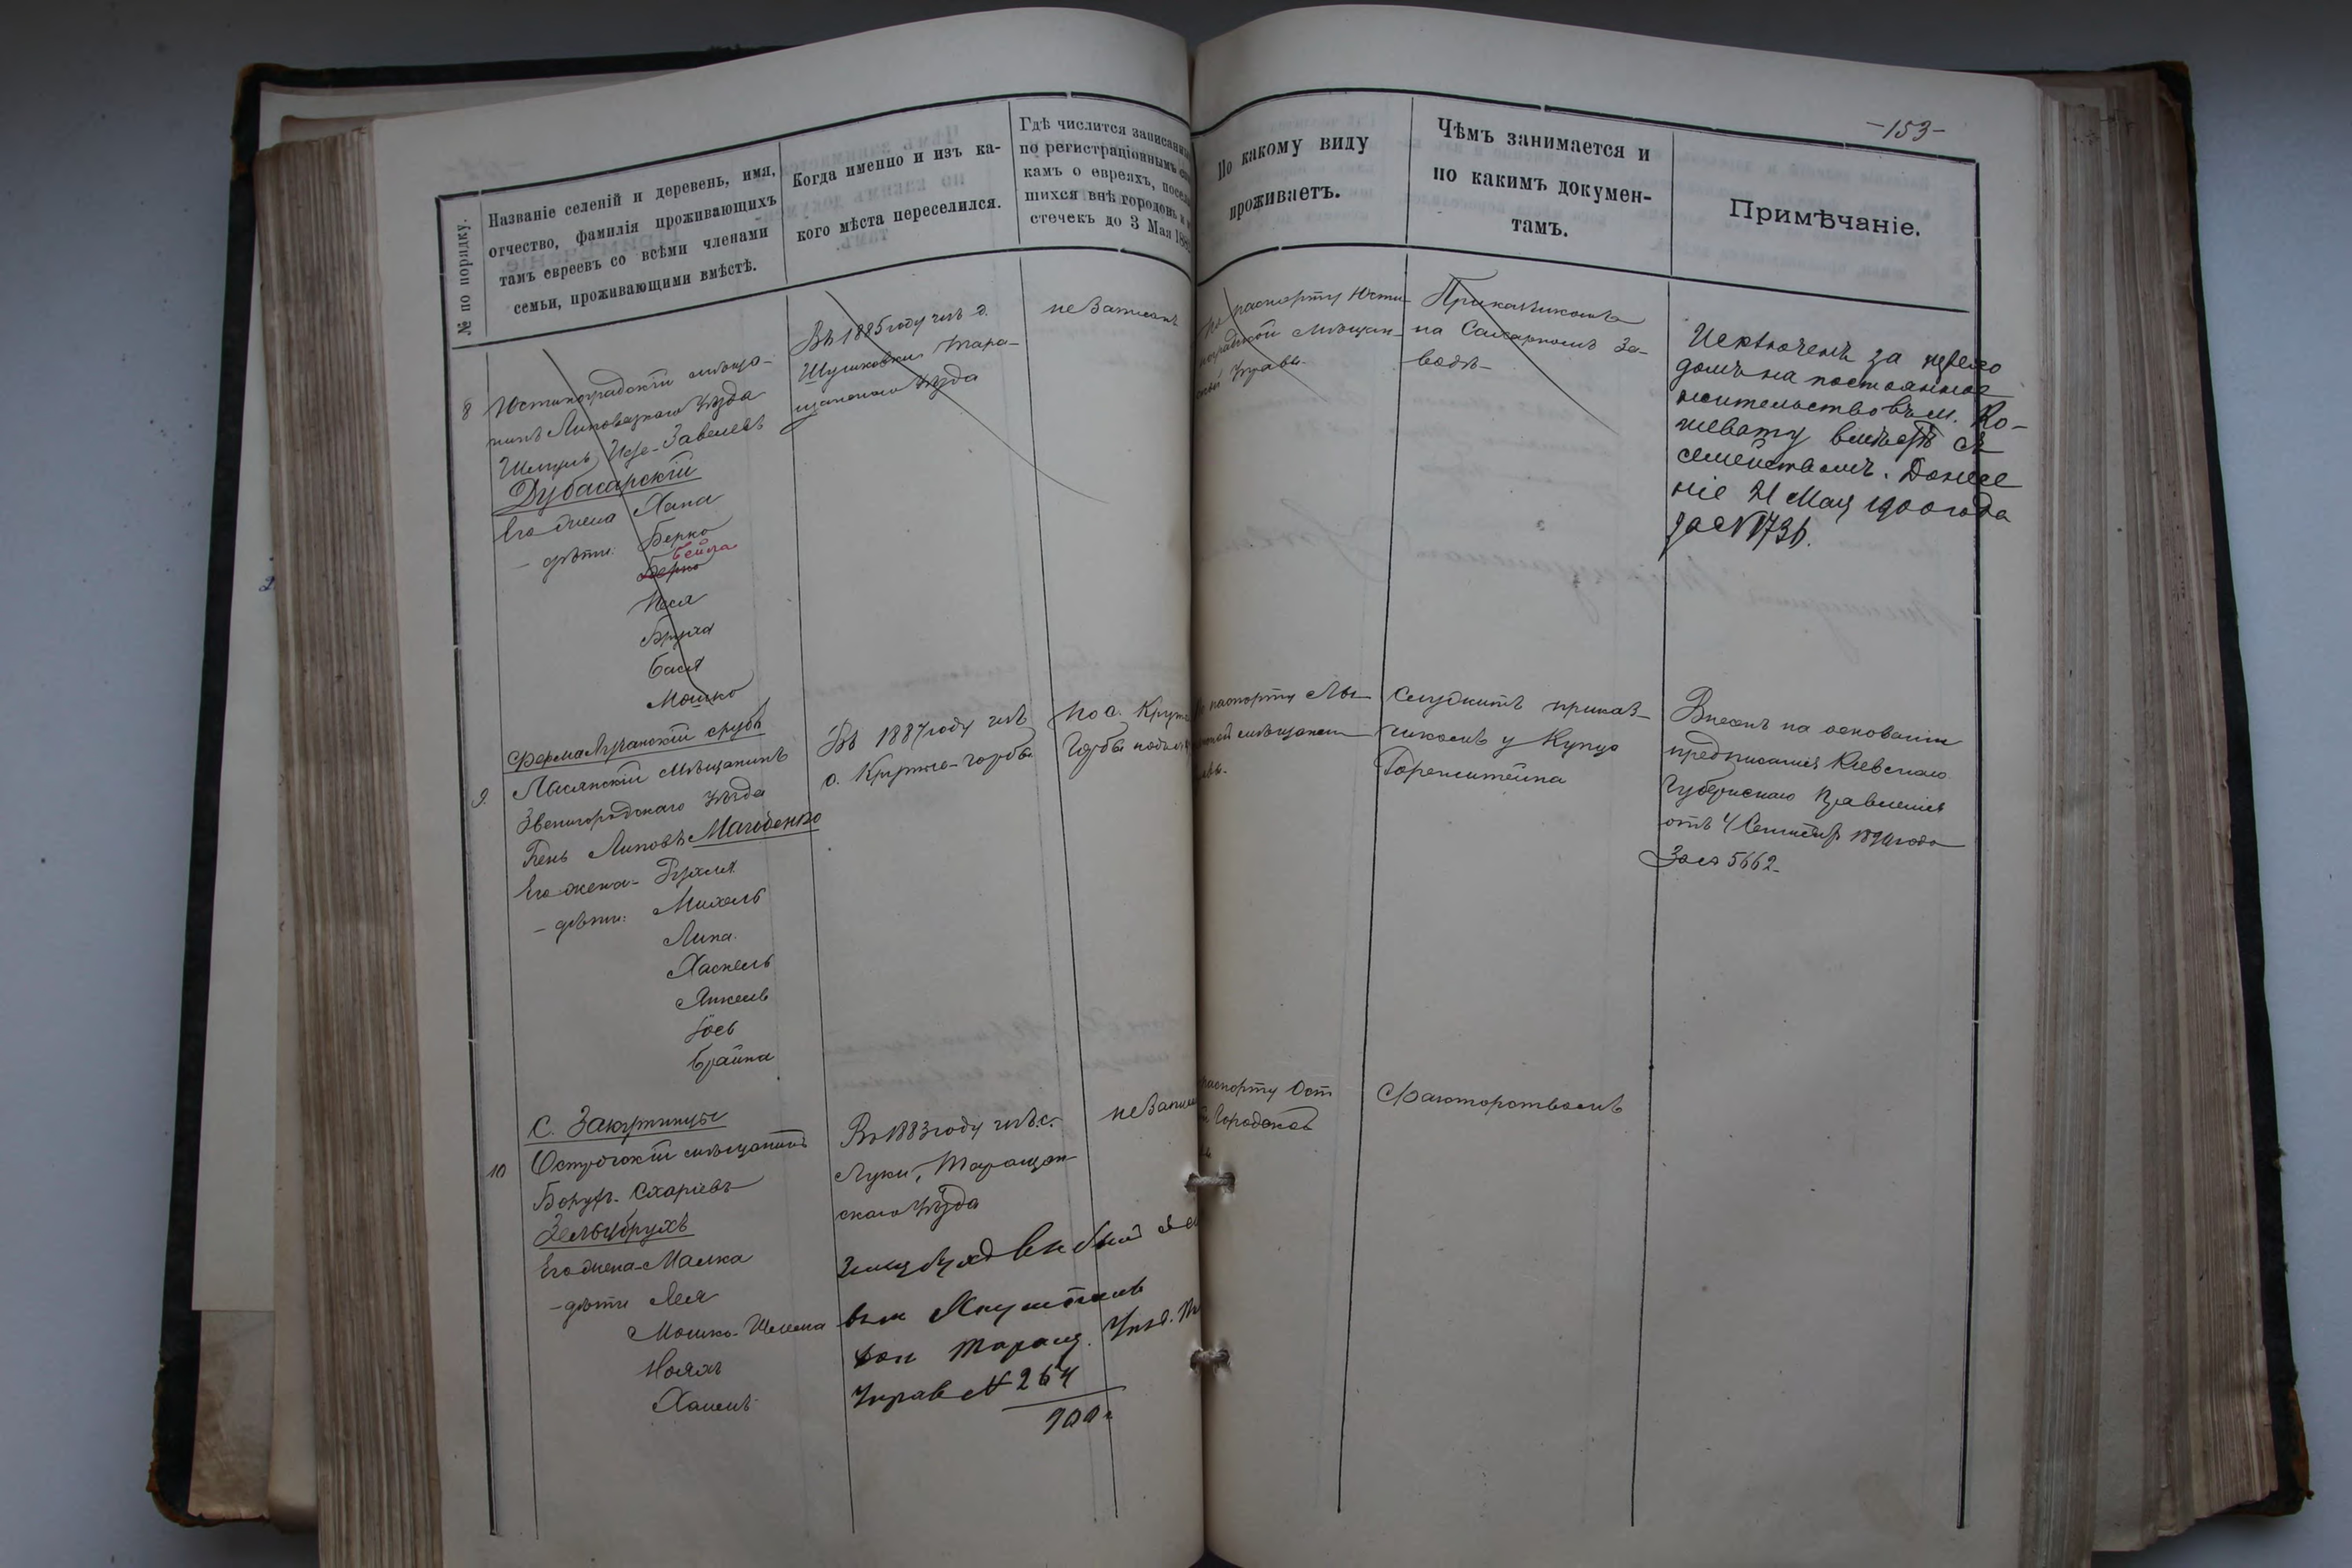 -153-
№ по порядку.
Названіе селеній и деревень, имя,
отчество, фамилія проживающихъ
тамъ евреевъ со всѣми членами
семьи, проживающими вмѣстѣ.
Когда именно и изъ ка-
кого мѣста переселился.
Гдѣ числится записаннымъ
по регистраціоннымъ
камъ о евреяхъ, посел
шихся внѣ городовъ и
стечекъ до 3 Мая 188
По какому виду
проживаетъ.
Чѣмъ занимается и
по какимъ докумен-
тамъ.
Примѣчаніе.
8
Юстиноградскій мѣща-
нинъ Липовецкаго Уѣзда
Шмуль Завелевъ
Дубасарскій
Его жена Хана
- дѣти: Берко
Бейла
Берко
Песя
Бруха
Бася
Мошко
Въ 1885 году изъ д.
Шушковки Тара-
щанскаго Уѣзда
не Записанъ
По паспорту Юсти-
ноградской мѣщан-
ской Управы.
Приказчикомъ
на Сахарномъ За-
водѣ-
Исключенъ за перехо
домъ на постоянное
жительство въ м. Ко-
шевату вмѣстѣ съ
семействомъ. Донесе
ніе 21 Мая 1900 года
за №
Ферма
9.
Лысянскій Мѣщанинъ
Звенигородскаго Уѣзда
Бень Липовъ
Его жена- Рухля
- дѣти: Михель
Липа.
Хаскель
Янкель
Іось
Брайна
Въ 1887 году изъ
с. Крутые-горбы
По с. Круты
Горбы
паспорту Лы-
мѣщанск
Служитъ приказ-
чикомъ у Купца
Горенштейна
Внесенъ на основаніи
предписанія Кіевскаго
Губернскаго Правленія
отъ 4 Сентября года
За № 5662-
С. Закутинцы
10
Острожскій мѣщанинъ
Борухъ
Зельцбрухъ
Его жена-Малка
- дѣти Лея
Мошко-Шлема
Нояхъ
Ханемъ
Въ 1883 году изъ с.
Луки, Таращан-
скаго Уѣзда
не Записа
паспорту Ост
Городской
Факторствомъ
Таращ.
Управ № 264
900 г